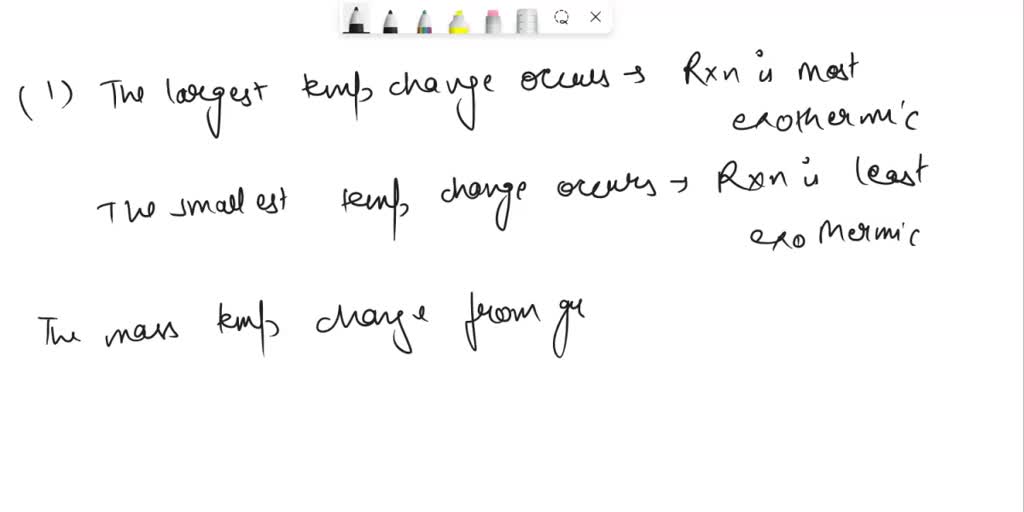 (1) The largest temp change occurs → Rxn is most
exothermic
The smallest temp change occurs → Rxn is least
exothermic
The mass temp change from gr